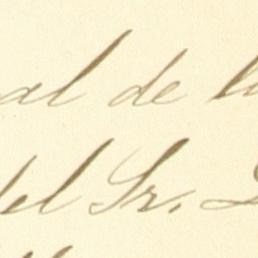 al de
del Sr.